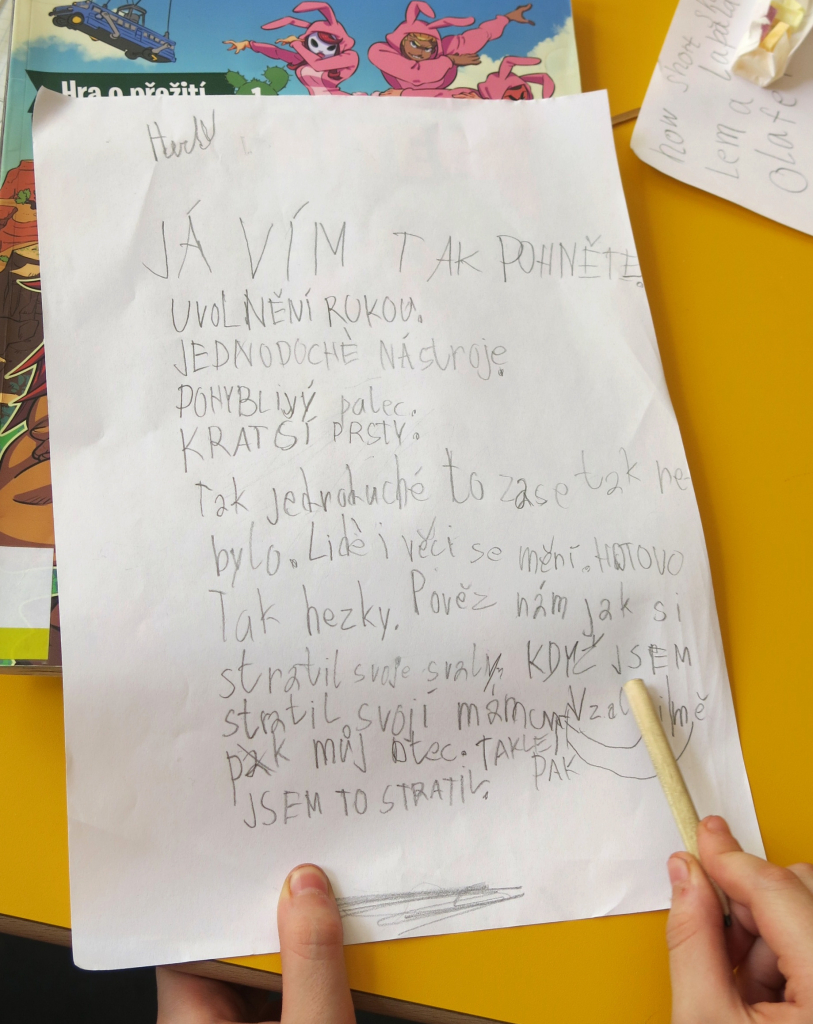 Hra o přežití
how short
Lem a
Olafe
JÁ VÍM TAK POHNĚTE.
UVOLNĚNÍ RUKOU.
JEDNODOCHÈ NÁstroje.
POHYBLIVÝ palec.
KRATŠÍ PRSTY.
Tak jednoduché to zase tak ne-
bylo. Lidè i věci se mění. HOTOVO
Tak hezky. Pověz nám jak si
stratil svoje svaly. KDYŽ JSEM
stratil svojí mámu Vzal mě
pak můj otec. TAKLE
PAK
JSEM TO STRATIL.